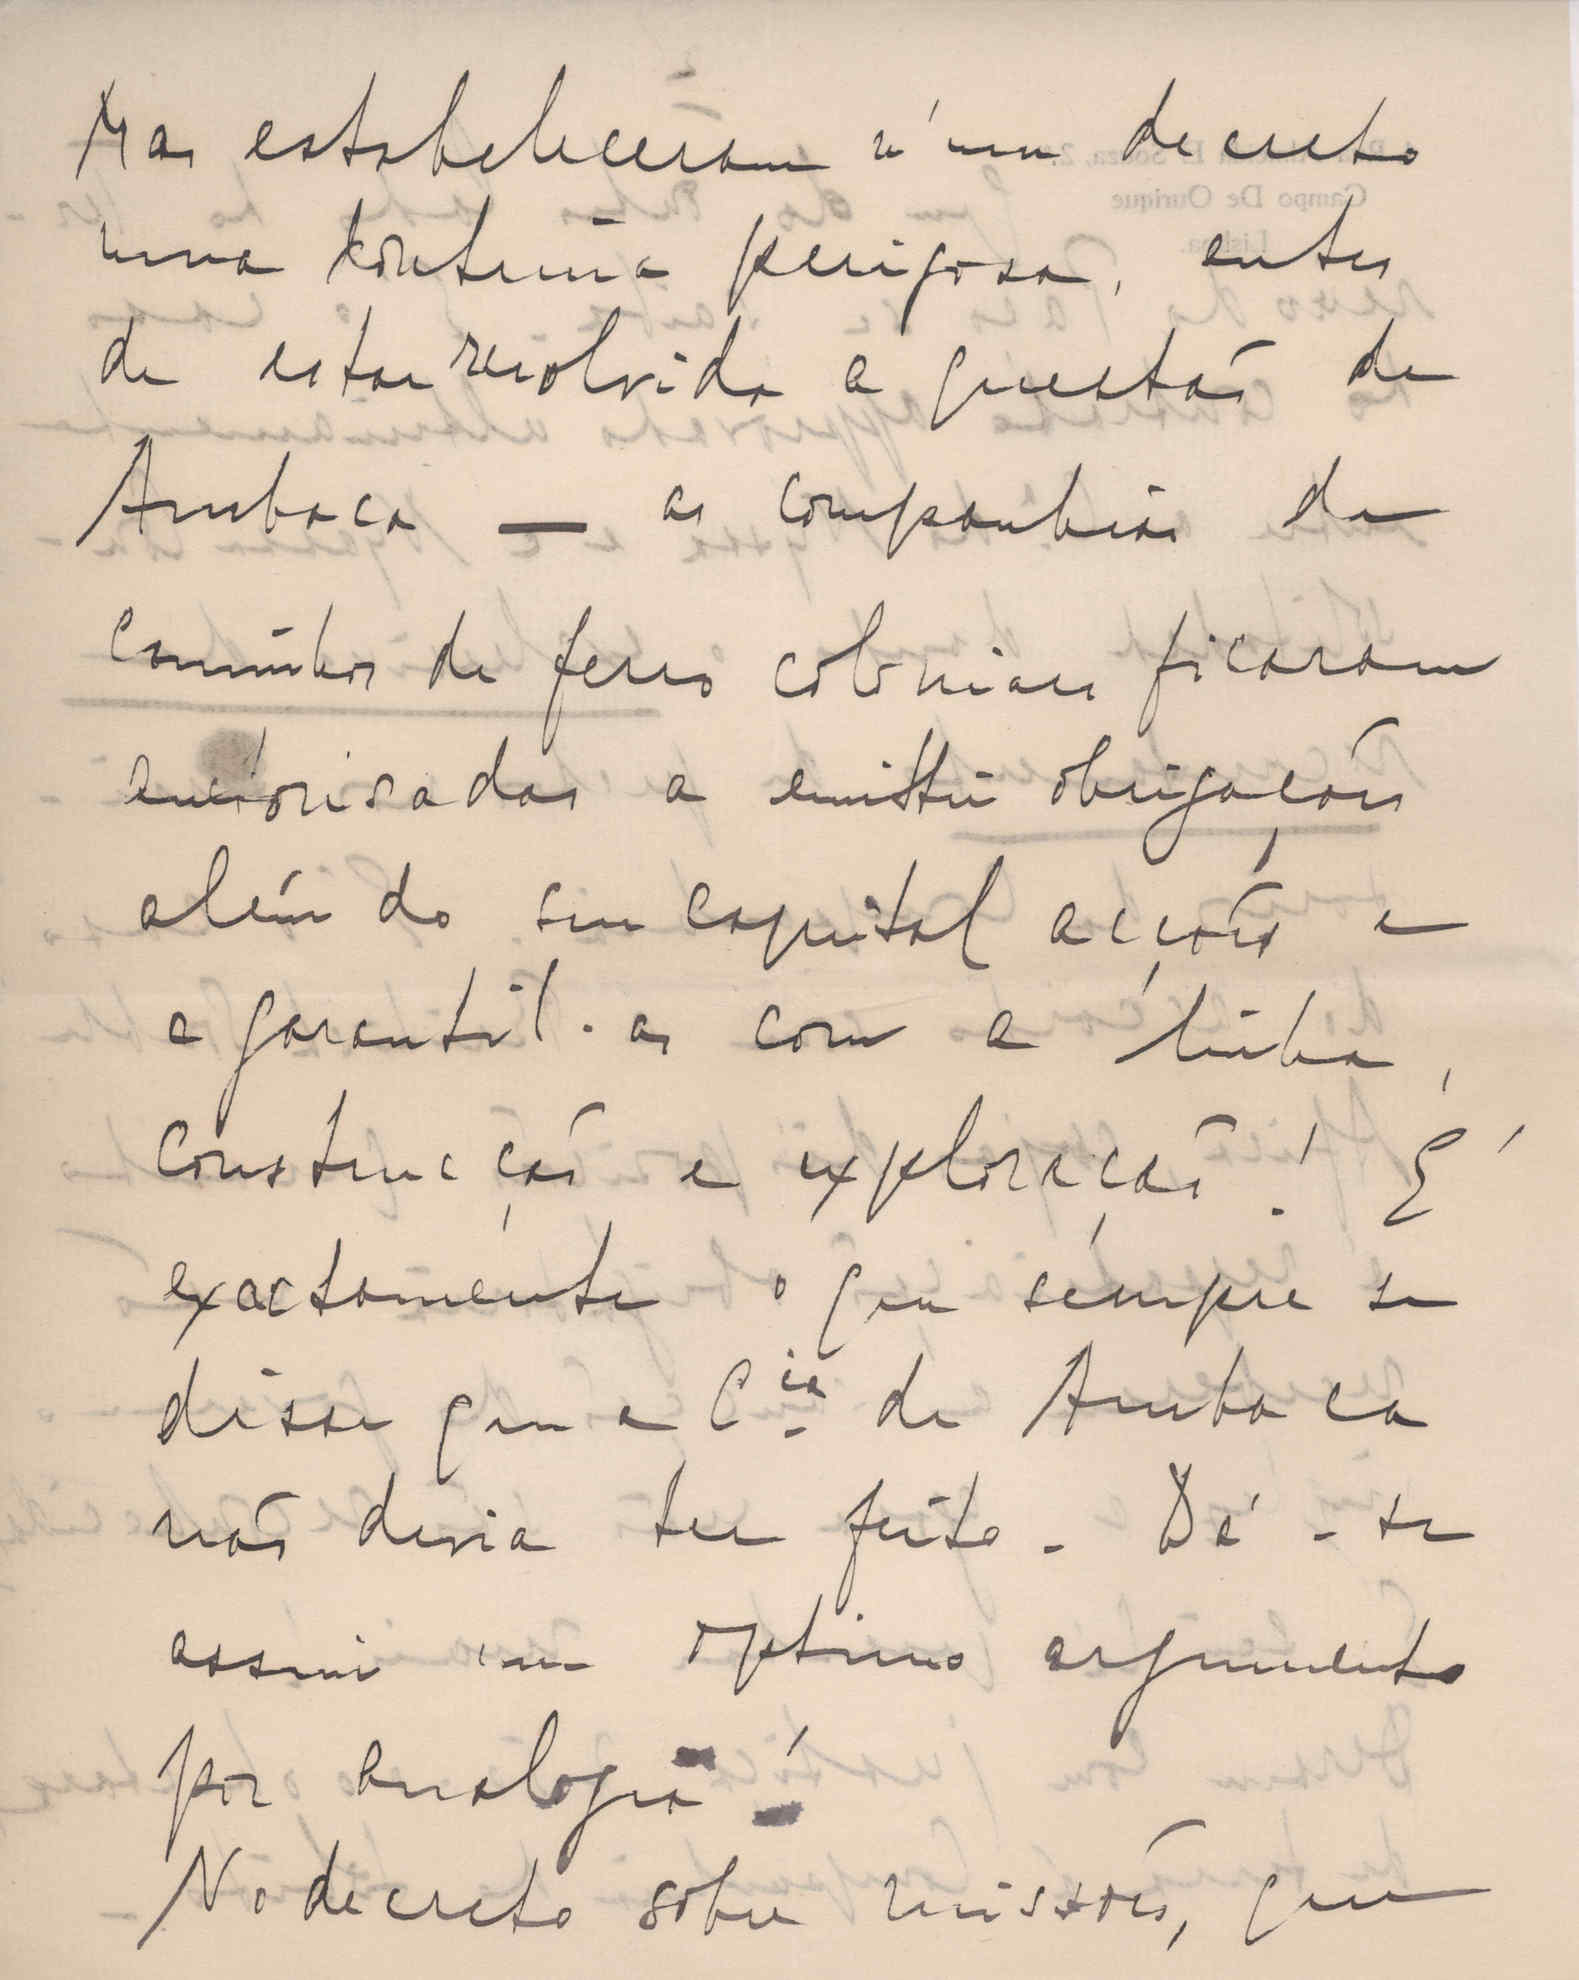 Mas estabeleceram n'um decreto
uma doutrina perigosa, antes
de estar resolvida a questão de
Ambaca — as companhias de
caminhos de ferro coloniaes ficaram
auctorisadas a emittir obrigações
além do seu capital acções e
a garantil-as com a linha,
construcção e exploração! É
exactamente o que sempre se
disse que a Cia de Ambaca
não devia ter feito. Dá-se
assim um optimo argumento
por analogia!
No decreto sobre missões, que